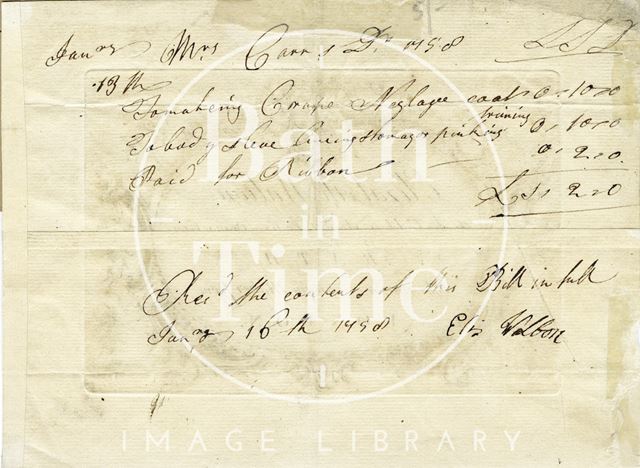 Janry Mrs Carr Dr 1758 L S D
13th
To making Crape Neglagee coat 0,, 10,, 0
triming
To body & sleve lining stomager pinking 0,, 10,, 0
Paid for Ribbon 0,, 2,, 0
L 1,, 2,, 0
Recd the contents of this Bill in full
Janry 16th 1758 Eliz Walbon
Bath
in
Time
IMAGE LIBRARY